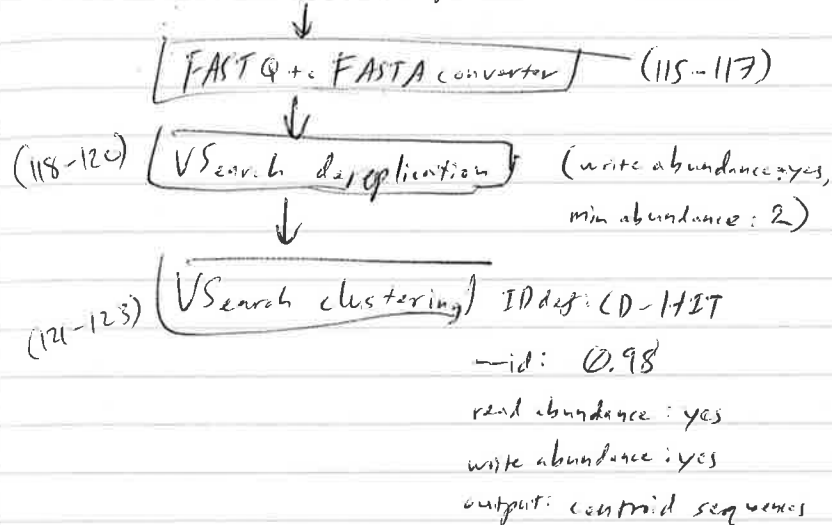 FASTQ to FASTA converter (115-117)
(118-120) VSearch dereplication (write abundance: yes,
min abundance: 2)
(121-123) VSearch clustering IDdef: CD-HIT
--id: 0.98
read abundance: yes
write abundance: yes
output: centroid sequences